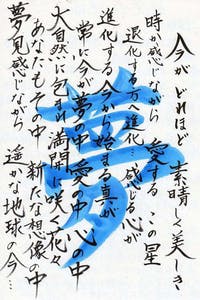 今がどれほど
素晴しく美しき
時か感じながら
愛するこの星
退化する方へ進化…感じる心が
進化する今から始まる真が
常に今が夢の中愛の中心の中
大自然に包まれ満開に咲く花々
あなたもその中新たな想像の中
夢見感じながら
遥かな地球の今…
夢